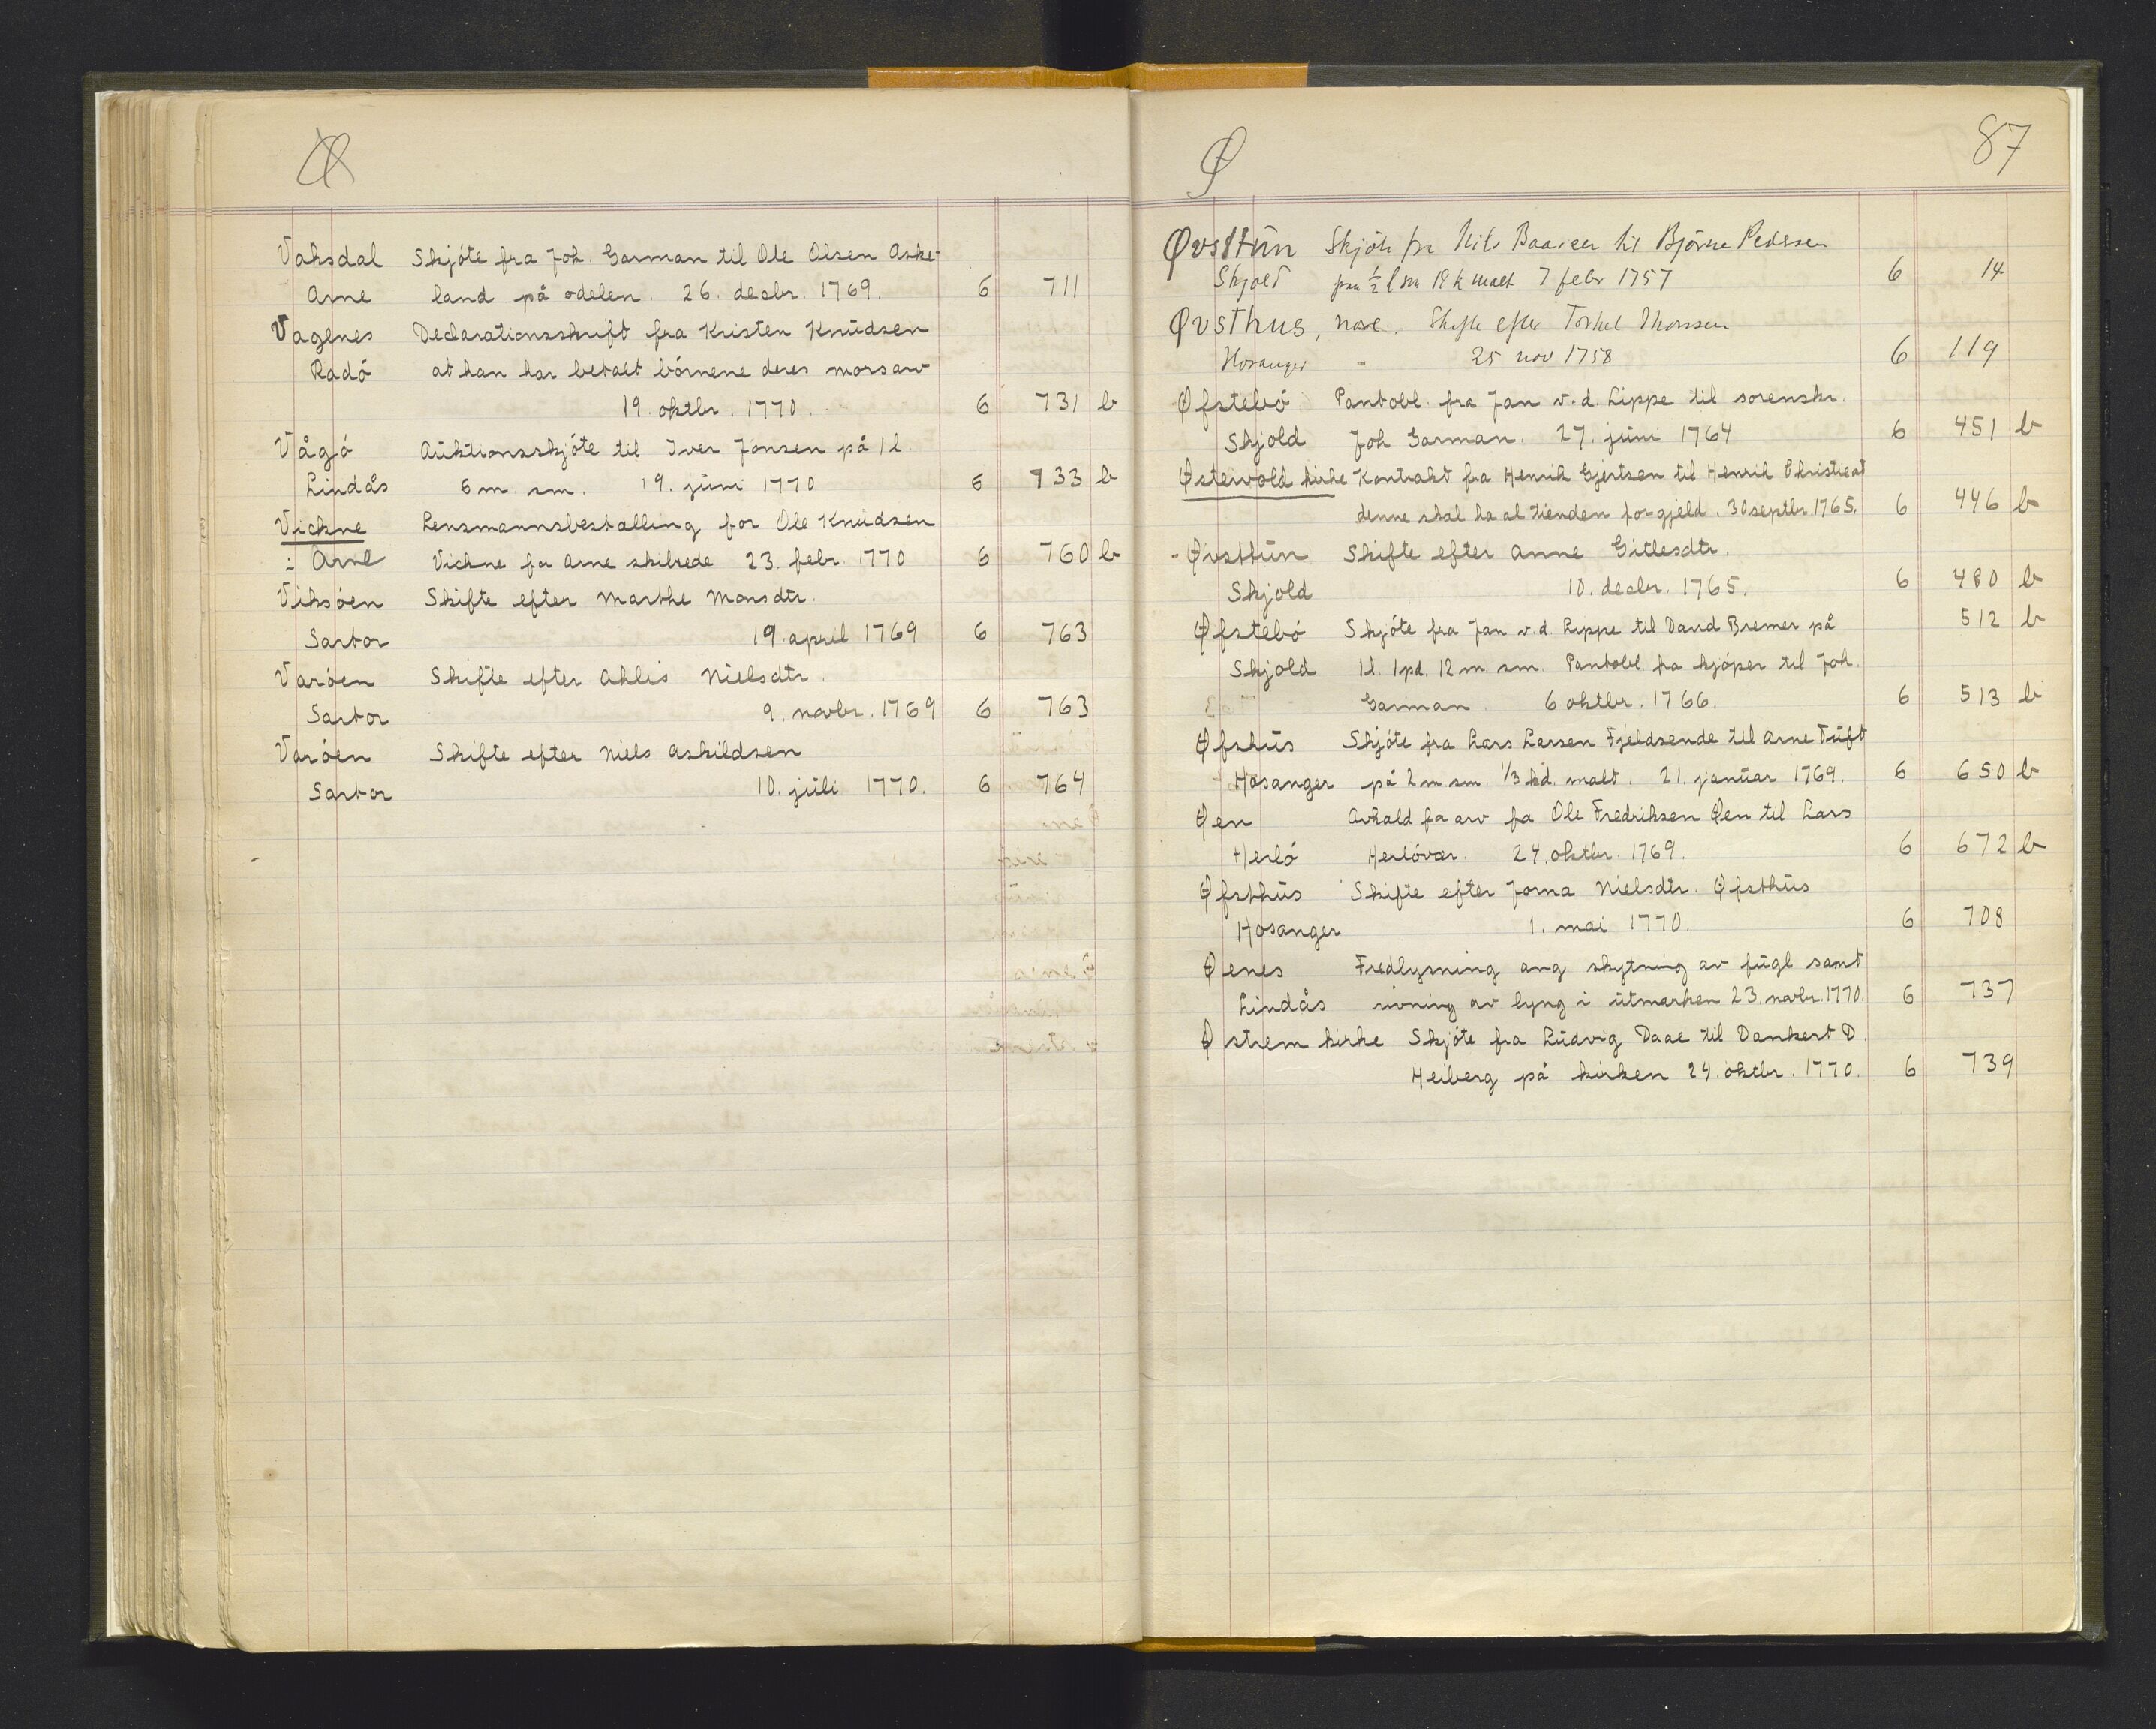 Ø
Vaksdal Skjöte fra Joh. Garman til Ole Olsen Aske-
Arne land på odelen. 26. decbr. 1769. 6 711
Vagenes Declarationsskrift fra Kristen Knudsen
Radö at han har betalt börnene deres morsarv
19. oktbr. 1770. 6 731 b
Vågö Auktionsskjöte til Iver Jonsen på 1 l.
Lindås 6 m. sm. 19. juni 1770 6 733 b
Vickne Lensmannsbestalling for Ole Knudsen
i Arne Vickne for Arne skibrede 23. febr. 1770 6 760 b
Viksöen Skifte efter Marthe Monsdtr.
Sartor 19. april 1769 6 763
Varöen Skifte efter Ahlis Nielsdtr.
Sartor 9. novbr. 1769 6 763
Varöen Skifte efter Niels Askildsen
Sartor 10. juli 1770. 6 764
Ø 87
Øvsttun Skjöte fra Nils til Björne Pedersen
Skjold paa ½ l 18 k malt 7 febr 1757 6 14
Øvsthus, Skifte efter Torkel Monssen
Hosanger 25 nov 1758 6 119
Øfstebö Pantobl. fra Jan v. d. Lippe til sorenskr.
Skjold Joh Garman. 27. juni 1764 6 451 b
Østervold kirke Kontrakt fra Henrik Gjertsen til Henrik Christie at
denne skal ha al tienden for gjeld. 30 septbr. 1765. 6 446 b
- Øvsttun Skifte efter Anne Gitlesdtr.
Skjold 10. decbr. 1765. 6 480 b
Øfstebö Skjöte fra Jan v. d. Lippe til David Bremer på 512 b
Skjold 1 l. 1 pd. 12 m. sm. Pantobl. fra kjöper til Joh.
Garman 6 oktbr. 1766. 6 513 b
Øfshus Skjöte fra Lars Larsen Fjeldsende til Arne Tuft
Hosanger på 2 m sm. 1/3 hd. malt. 21. januar 1769. 6 650 b
Øen Avkald for arv fra Ole Fredriksen Øen til Lars
Herlö Herlövær. 24. oktbr. 1769. 6 672 b
Øfsthus Skifte efter Jorna Nielsdtr. Øfsthus
Hosanger 1. mai 1770. 6 708
Øenes Fredlysning ang skytning av fugl samt
Lindås rivning av lyng i utmarken 23. novbr. 1770. 6 737
Østrem kirke Skjöte fra Ludvig Daae til Dankert D.
Heiberg på kirken 24. oktbr. 1770. 6 739